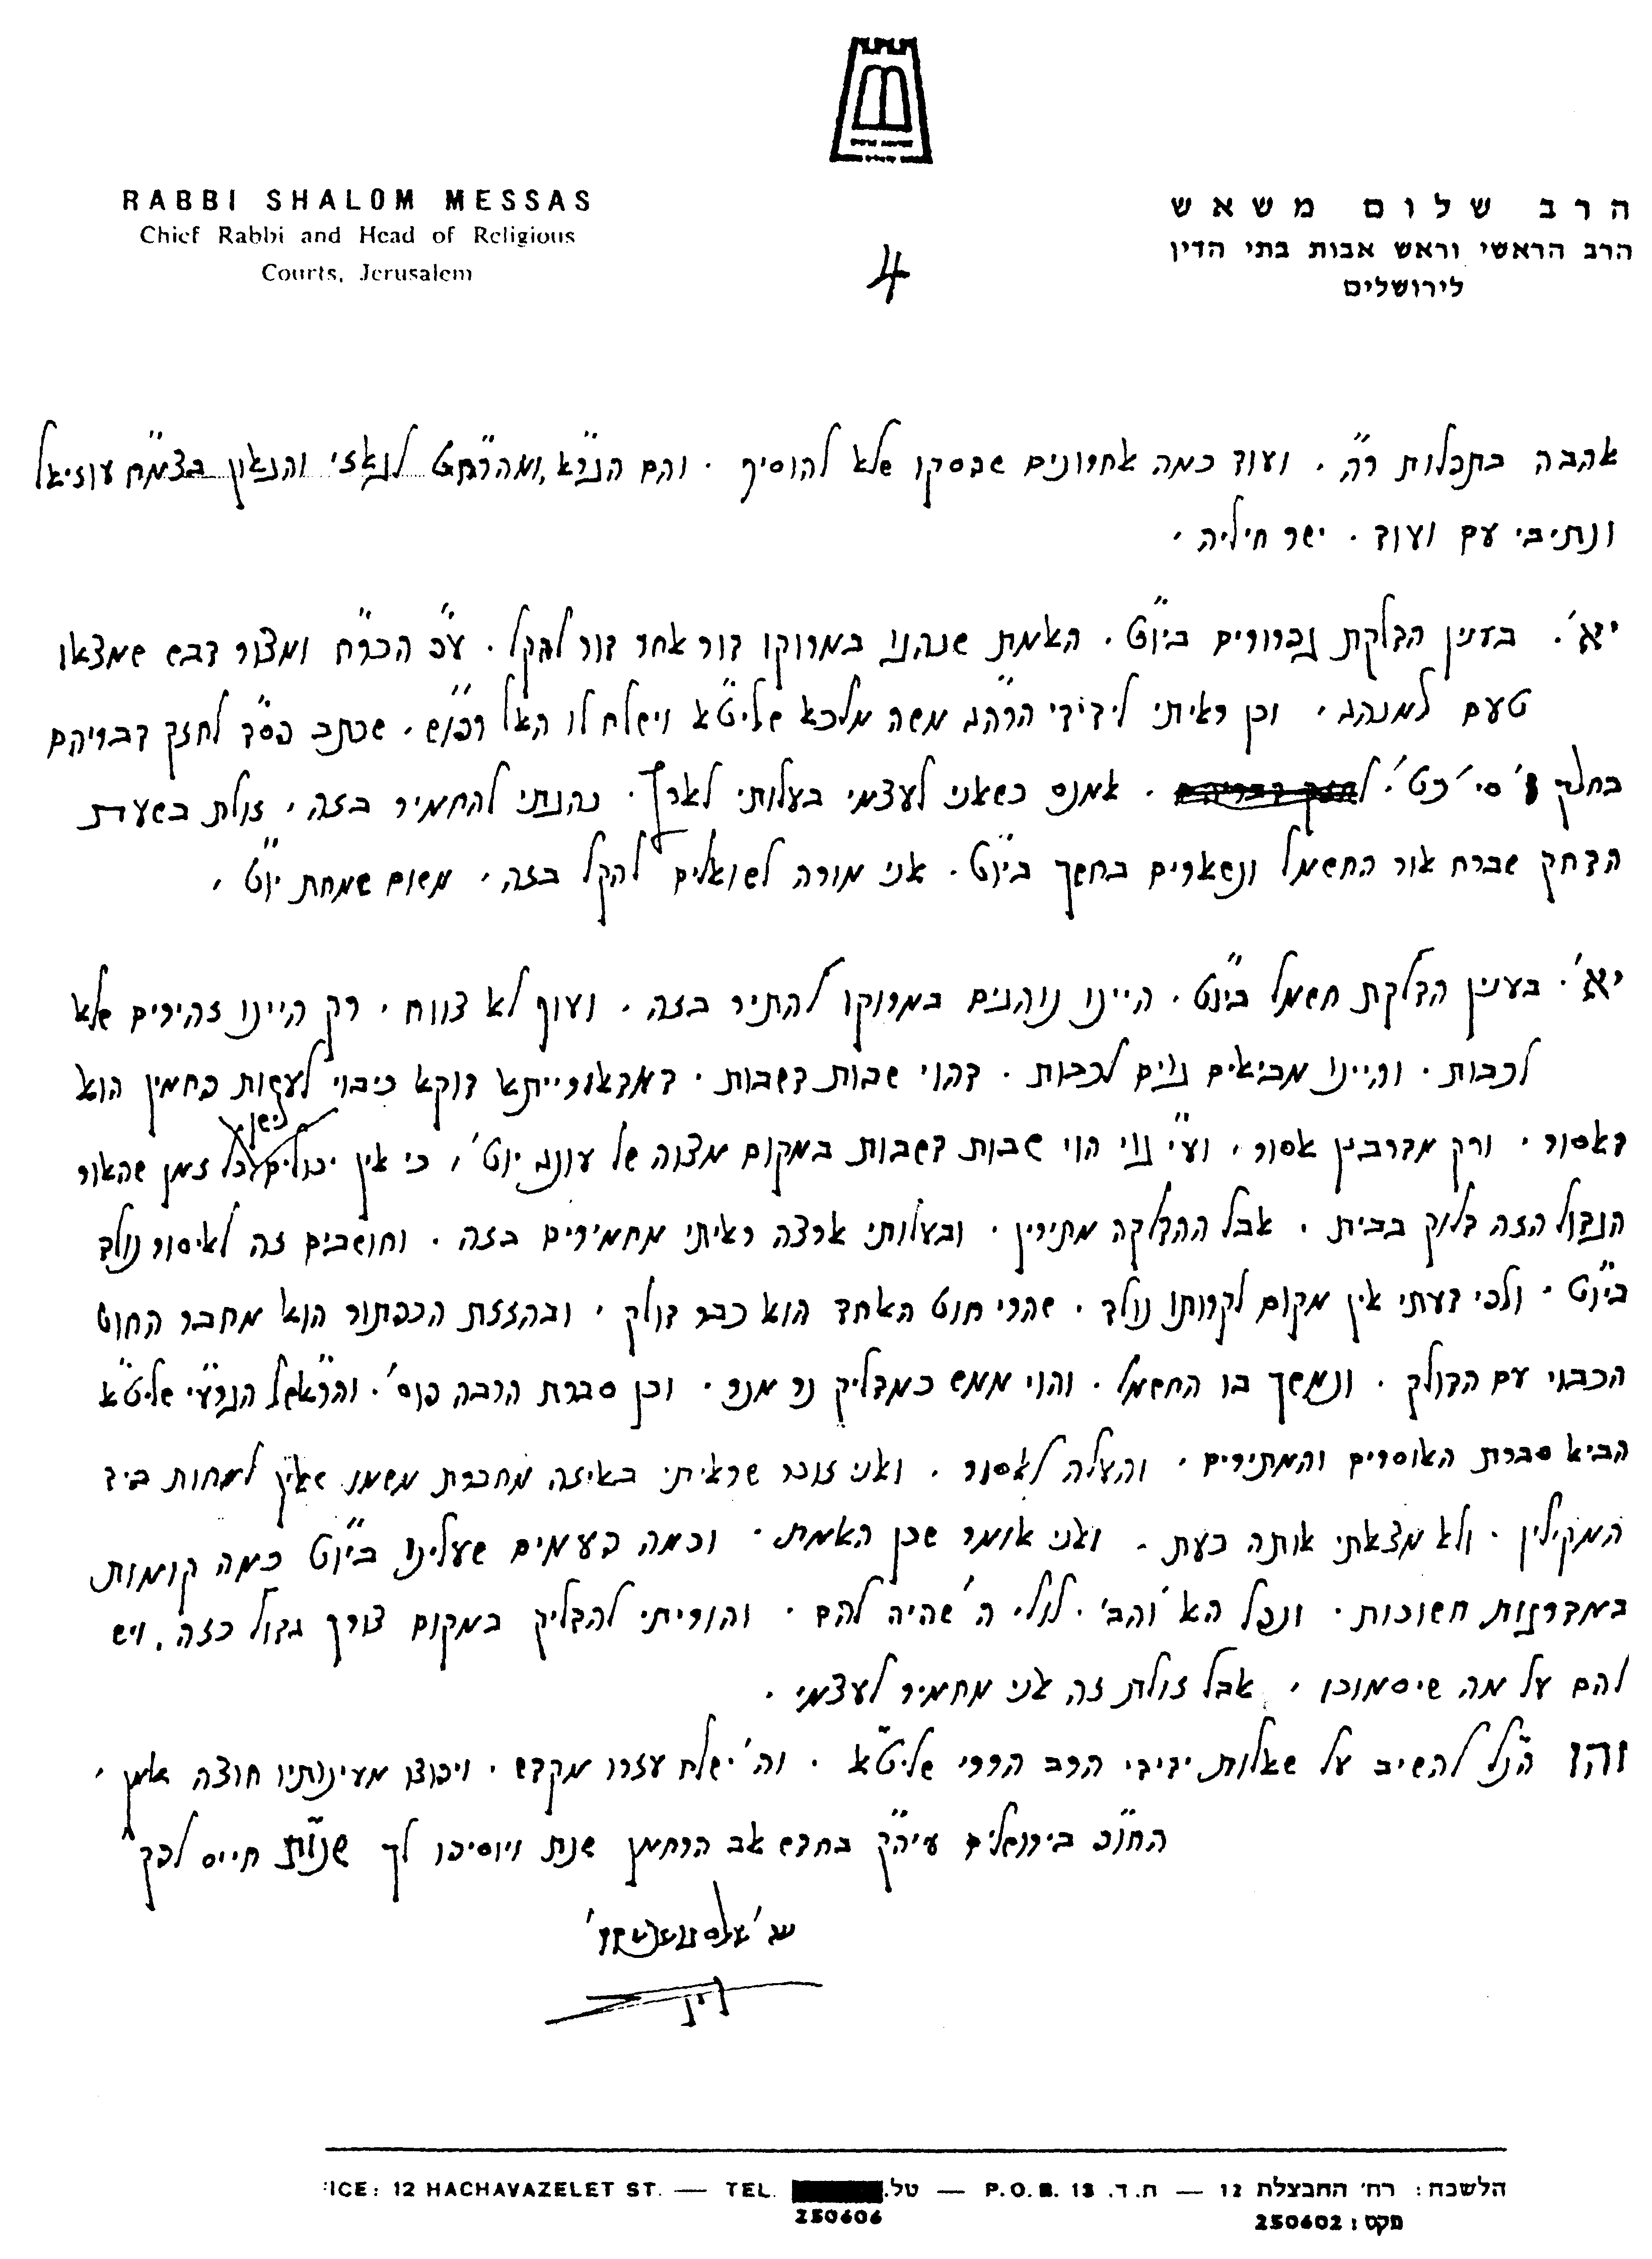 RABBI SHALOM MESSAS
Chief Rabbi and Head of Religious
Courts, Jerusalem
הרב שלום משאש
הרב הראשי וראש אבות בתי הדין
לירושלים
4
אהבה בתפלות ר"ה. ועוד כמה אחרונים שפסקו שלא להוסיף. והם הגר"א, ומהר"חט לגאזי והגאון בצמ"ח עוזיאל
ונתיבי עם ועוד. ישר חיליה.
יא'. בענין הדלקת גפרורים ביו"ט. האמת שנהגו במרוקו דור אחר דור להקל. ע"פ הכר"ח ומצור דבש שמצאו
טעם למנהג. וכן ראיתי לידידי הרה"ג משה מלכא שליט"א וישלח לו האל רפו"ש. שכתב פס"ד לחזק דבריהם
בחלק סי' כט'. אמנם כשאני לעצמי בעלותי לארץ. נהגתי להחמיר בזה. זולת בשעת
הדחק שברח אור החשמל ונשארים בחשך ביו"ט. אני מורה לשואלים להקל בזה. משום שמחת יו"ט.
יא'. בענין הדלקת חשמל ביו"ט. היינו נוהגים במרוקו להתיר בזה. ועוף לא צווח. רק היינו זהירים שלא
לכבות. והיינו מביאים גוים לכבות. דהוי שבות דשבות. דמדאורייתא דוקא כיבוי לעשות פחמין הוא
דאסור. ורק מדרבנן אסור. וע"י גוי הוי שבות דשבות במקום מצוה של עונג יוט'. כי אין יכולים לישון כל זמן שהאור
הגדול הזה דלוק בבית. אבל ההדלקה מתירין. ובעלותי ארצה ראיתי מחמירים בזה. וחושבים זה לאיסור נולד
ביו"ט. ולפי דעתי אין מקום לקרותו נולד. שהרי חוט האחד הוא כבר דולק. ובהזזת הכפתור הוא מחבר החוט
הכבוי עם הדולק. ונמשך בו החשמל. והוי ממש כמדליק נר מנר. וכן סברת הרבה פוס'. והראש"ל הגרע"י שליט"א
הביא סברת האוסרים והמתירים. והעלה לאסור. ואני זוכר שראיתי באיזה מחברת משמו שאין למחות ביד
המקילין. ולא מצאתי אותה כעת. ואני אומר שכן האמת. וכמה פעמים שעלינו ביו"ט כמה קומות
במדרגות חשוכות. ונפל הא' והב'. לולי ה' שהיה להם. והוריתי להדליק במקום צורך גדול כזה. ויש
להם על מה שיסמוכו. אבל זולת זה אני מחמיר לעצמי.
זהו הנ"ל להשיב על שאלות ידידי הרב הררי שליט"א. וה' ישלח עזרו מקדש. ויפוצו מעינותיו חוצה אמן.
החו"פ בירושלים עיה"ק בחדש אב הרחמן שנת ויוסיפו לך שנות חיים לפק
הלשכה: רח' החבצלת 12 — ת.ד. 13 P.O.B. — טל. TEL. — ICE: 12 HACHAVAZELET ST.
250606
פקס: 250602